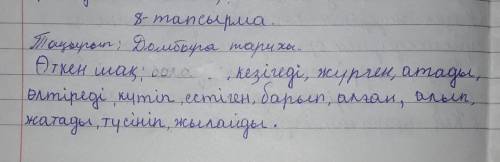 8-тапсырма.
Тақырып: Домбыра тарихы.
Өткен шақ: , кезігеді, жүрген, атады,
өлтіреді, күтіп, естіген, барып, алған, алып,
жатады, түсініп, жылайды.